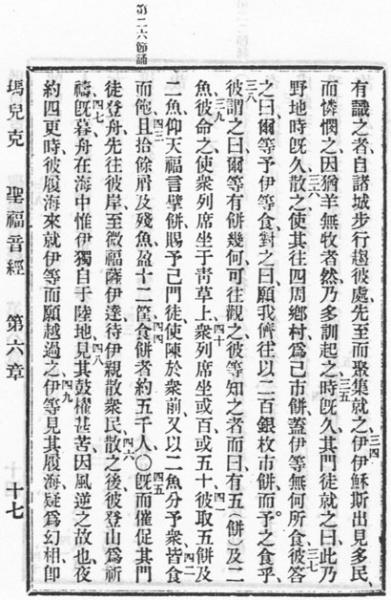 第二六節誦
有識之者自諸城步行趨彼處、先至而聚集就之、三四伊伊穌斯出見多民、
而憐憫之、因猶羊無牧者然、乃多訓起之、三五時旣久、其門徒就之曰、此乃
野地、時旣久、三六散之、使其往四周鄉村、爲己市餅、蓋伊等無何所食、三七彼答
之曰、爾等予伊等食、對之曰、願我儕往以二百銀枚市餅、而予之食乎、
三八彼謂之曰、爾等有餅幾何、可往觀之、彼等知之者、而曰有五(餅)及二
魚、三九彼命之、使衆列席坐于靑草上、四十衆列席坐、或百或五十、四一彼取五餅及
二魚、仰天福言、擘餅賜予己門徒、使陳於衆前、又以二魚分予衆、四二皆食
而飽、四三且拾餘屑及殘魚盈十二筐、四四食餅者約五千人、〇四五旣而催促其門
徒登舟、先往彼岸至微福薩伊達、待伊親散衆民、四六散之後、彼登山爲祈
禱、四七旣暮、舟在海中、惟伊獨自于陸地、四八見其鼓櫂甚苦、因風逆之故也、夜
約四更時、彼履海來就伊等、而願越過之、四九伊等見其履海、疑爲幻相、卽
瑪兒克　聖福音經　第六章　十七